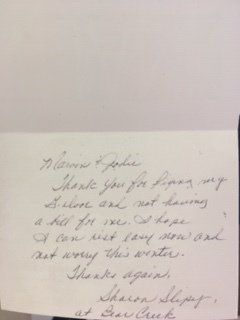 Marvin & Jodie
Thank you for fixing my
and not having
a bill for me. I hope
I can rest easy now and
not worry this winter.
Thanks again.
Sharon
at Bear Creek